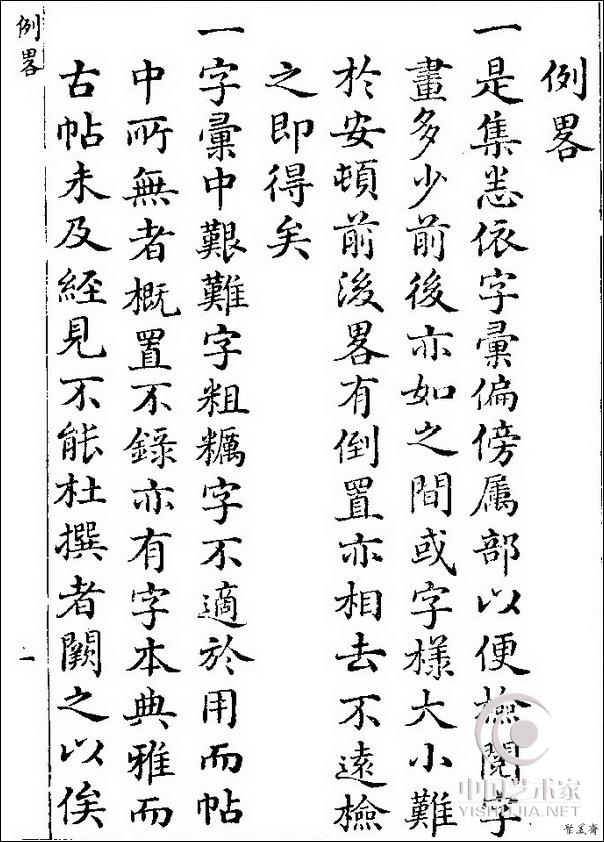 例畧
一是集悉依字彙偏傍属部以便檢閱字
畫多少前後亦如之間或字樣大小難
於安頓前後畧有倒置亦相去不遠檢
之即得矣
一字彙中艱難字粗糲字不適於用而帖
中所無者概置不錄亦有字本典雅而
古帖未及經見不能杜撰者闕之以俟
例畧
一
中国艺术家
YISHUJIA.NET